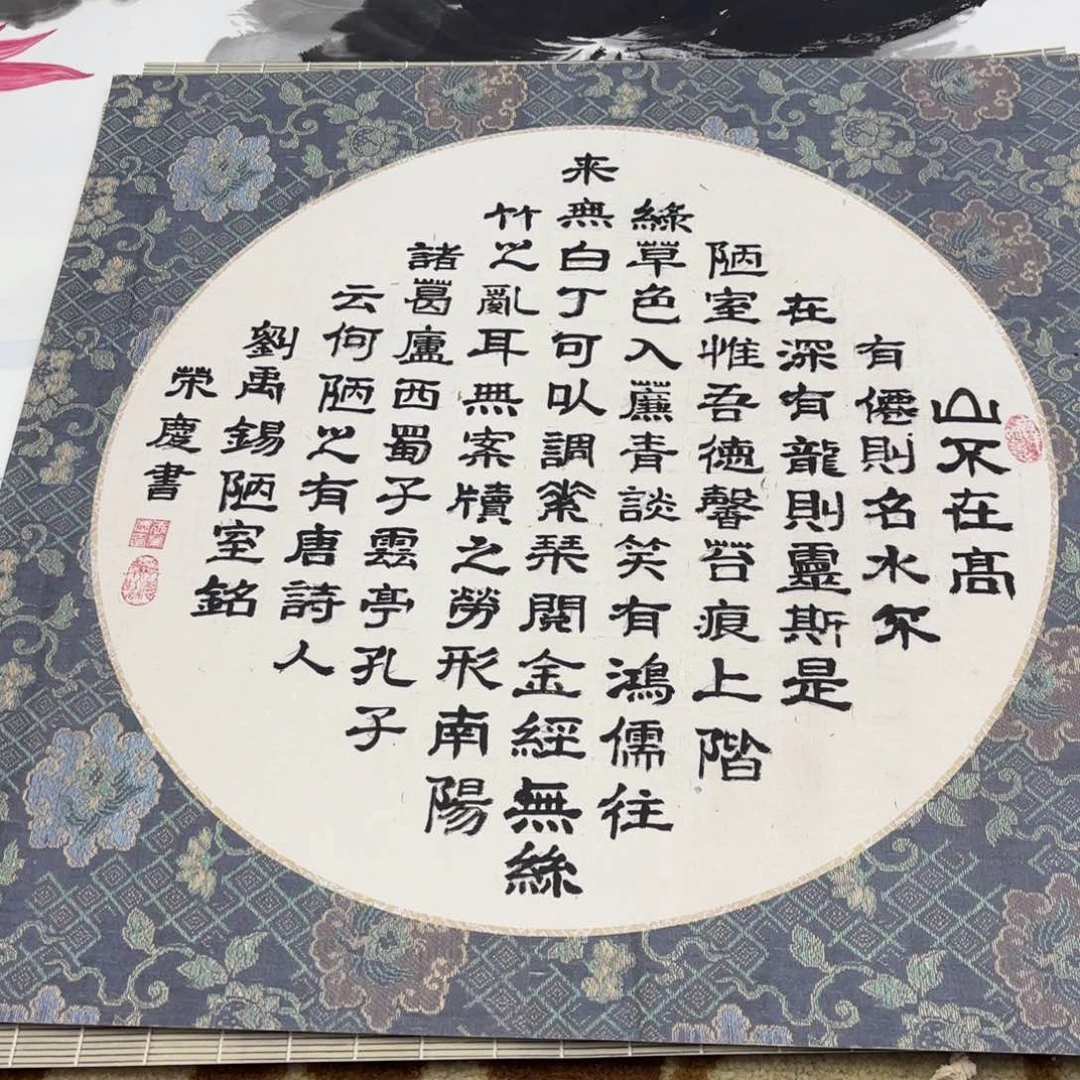 山不在高
有僊則名水不
在深有龍則靈斯是
陋室惟吾德馨苔痕上階
綠草色入簾青談笑有鴻儒往
来無白丁可以調素琴閱金經無絲
竹之亂耳無案牘之勞形南陽
諸葛廬西蜀子雲亭孔子
云何陋之有唐詩人
劉禹錫陋室銘
榮慶書